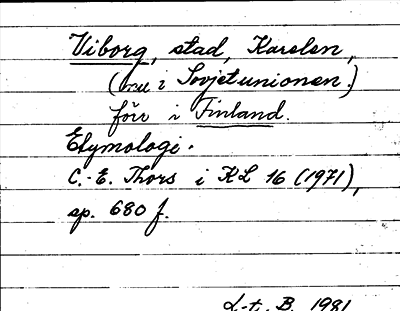 Viborg, stad, Karelen,
(nu i Sovjetunionen.)
förr i Finland.
Etymologi.
C.-E. Thors i KL 16 (1971),
sp. 680 f.
L-t. B. 1981